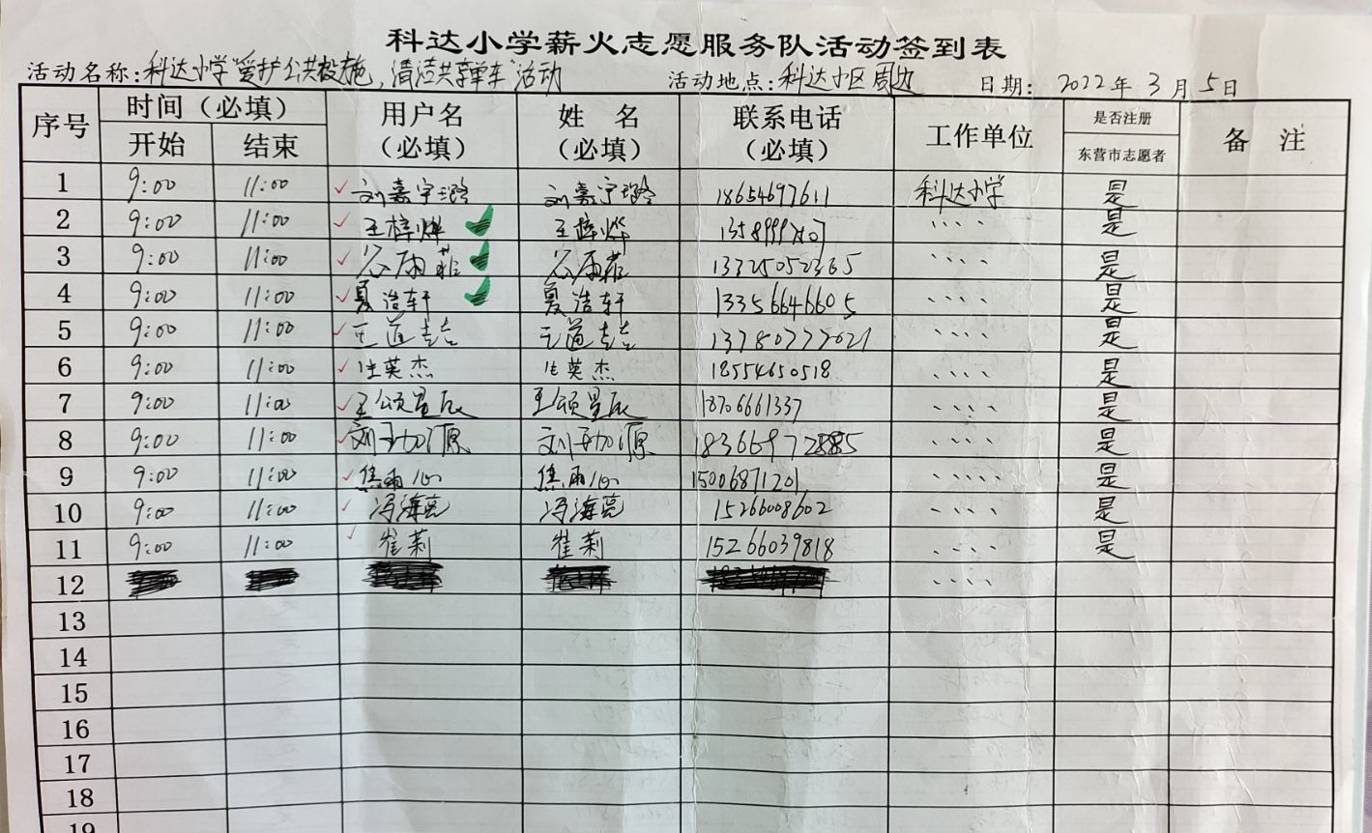 科达小学薪火志愿服务队活动签到表
活动名称:科达小学"爱护公共设施,清洁共享单车"活动 活动地点:科达小区周边 日期: 2022年 3月 5日
序号 时间(必填) 用户名(必填) 姓 名(必填) 联系电话(必填) 工作单位 是否注册东营市志愿者 备 注
开始 结束
1 9:00 11:00 刘嘉宇璐 刘嘉宇璐 18654697611 科达小学 是
2 9:00 11:00 王梓烨 王梓烨 、、、、 是
3 9:00 11:00 谷雨菲 谷雨菲 13325052365 、、、、 是
4 9:00 11:00 夏浩轩 夏浩轩 13356646605 、、、、 是
5 9:00 11:00 王道喆 王道喆 13780777021 、、、、 是
6 9:00 11:00 英杰 英杰 18554650518 、、、、 是
7 9:00 11:00 王颂星辰 王颂星辰 18706661337 、、、、 是
8 9:00 11:00 刘子加源 刘子加源 、、、、 是
9 9:00 11:00 焦雨心 焦雨心 15006871201 、、、、 是
10 9:00 11:00 冯海亮 冯海亮 15266008602 、、、、 是
11 9:00 11:00 崔莉 崔莉 15266039818 、、、、 是
12 、、、、
13
14
15
16
17
18
19